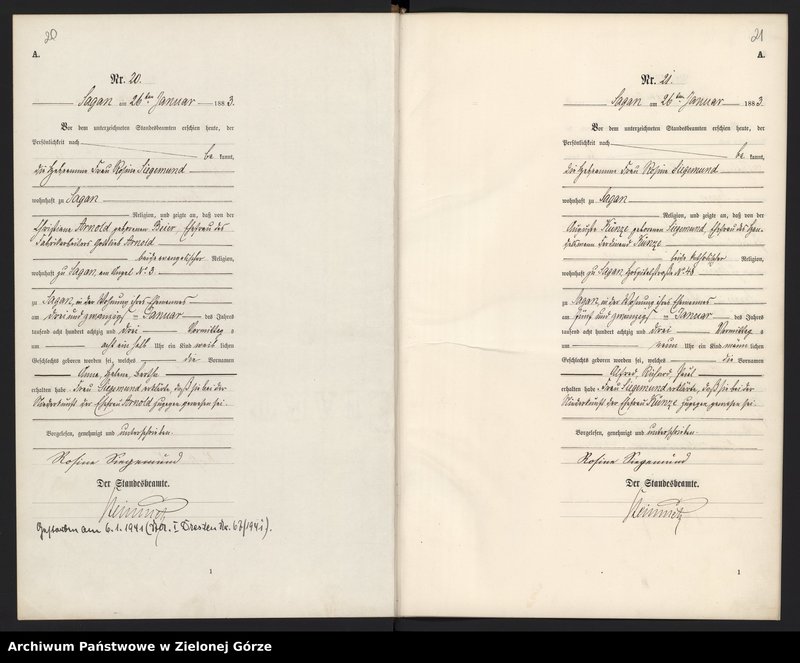 20
A.
Nr. 20.
Sagan am 26ten Januar 1883.
Vor dem unterzeichneten Standesbeamten erschien heute, der
Persönlichkeit nach
be kannt,
die Hebeamme Frau Rosine Siegemund
wohnhaft zu Sagan
Religion, und zeigte an, daß von der
Christiane Arnold geborenen Beier, Ehefrau des
Fabrikarbeiters Gottlieb Arnold
beide evangelischer Religion,
wohnhaft zu Sagan, am Anger No 3.
zu Sagan, in der Wohnung ihres Ehemannes
am drei und zwanzigsten Januar des Jahres
tausend acht hundert achtzig und drei Vormittag s
um acht ein halb Uhr ein Kind weib lichen
Geschlechts geboren worden sei, welches die Vornamen
Anna, Helene Bertha
erhalten habe. Frau Siegemund erklärte, daß sie bei der
Niederkunft der Ehefrau Arnold zugegen gewesen sei.
Vorgelesen, genehmigt und unterschrieben.
Rosine Siegemund
Der Standesbeamte.
Steinmetz
Gestorben am 6.1.1941 (St.A. I Dresden Nr. 67/1941).
1
21
A.
Nr. 21.
Sagan am 26ten Januar 1883.
Vor dem unterzeichneten Standesbeamten erschien heute, der
Persönlichkeit nach
be kannt,
die Hebeamme Frau Rosine Siegemund
wohnhaft zu Sagan
Religion, und zeigte an, daß von der
Auguste Kunze geborenen Siegemund, Ehefrau des Han-
delsmann Ferdinand Kunze
beide katholischer Religion,
wohnhaft zu Sagan, Hospitalstraße No 48
zu Sagan, in der Wohnung ihres Ehemannes
am fünf und zwanzigsten Januar des Jahres
tausend acht hundert achtzig und drei Vormittag s
um neun Uhr ein Kind männ lichen
Geschlechts geboren worden sei, welches die Vornamen
Alfred, Richard, Paul
erhalten habe. Frau Siegemund erklärte, daß sie bei der
Niederkunft der Ehefrau Kunze zugegen gewesen sei.
Vorgelesen, genehmigt und unterschrieben.
Rosine Siegemund
Der Standesbeamte.
Steinmetz
1
Archiwum Państwowe w Zielonej Górze